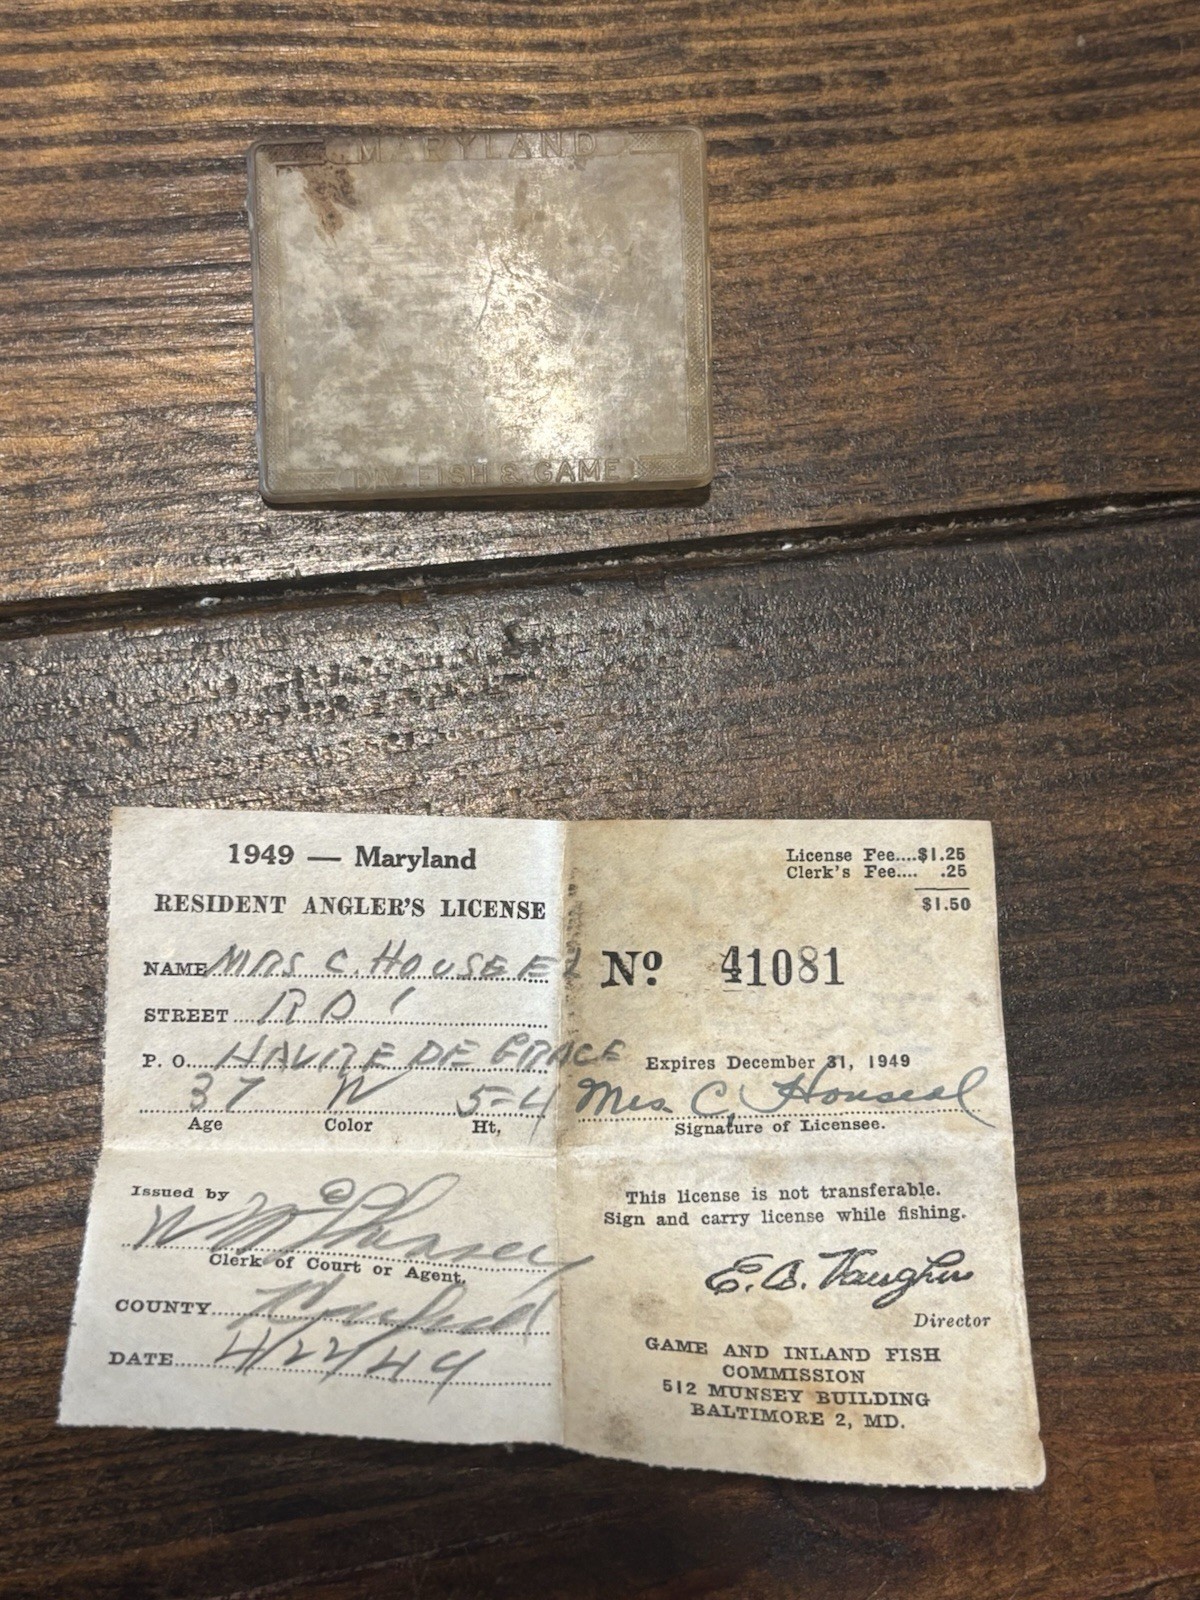 MARYLAND
DIV. FISH & GAME
1949 — Maryland
RESIDENT ANGLER'S LICENSE
NAME MRS C. HOUSEEL
STREET R D 1
P. O. HAVRE DE GRACE
37 W 5-4
Age Color Ht.
Issued by
Clerk of Court or Agent.
COUNTY Harford
DATE 4/22/49
License Fee....$1.25
Clerk's Fee.... .25
$1.50
No 41081
Expires December 31, 1949
Mrs. C. Houseal
Signature of Licensee.
This license is not transferable.
Sign and carry license while fishing.
E. B. Vaughn
Director
GAME AND INLAND FISH
COMMISSION
512 MUNSEY BUILDING
BALTIMORE 2, MD.